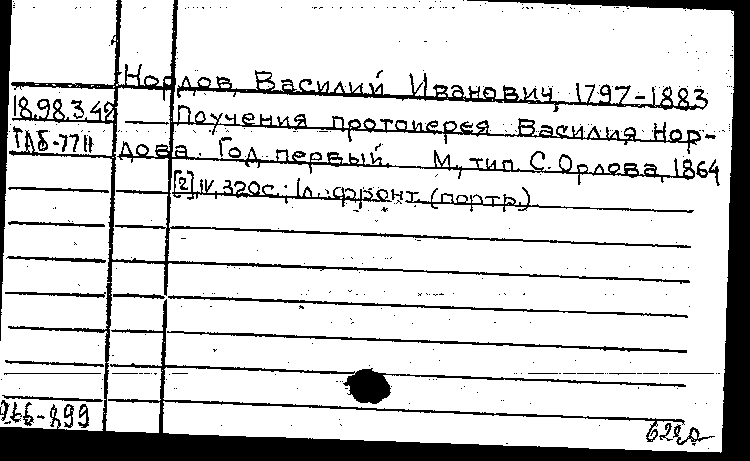 Нордов, Василий Иванович, 1797-1883
18.98.3.49 Поучения протоиерея Василия Нор-
дова. Год первый. М., тип. С. Орлова, 1864
[2], IV, 320с.; 1л. фронт. (портр.)